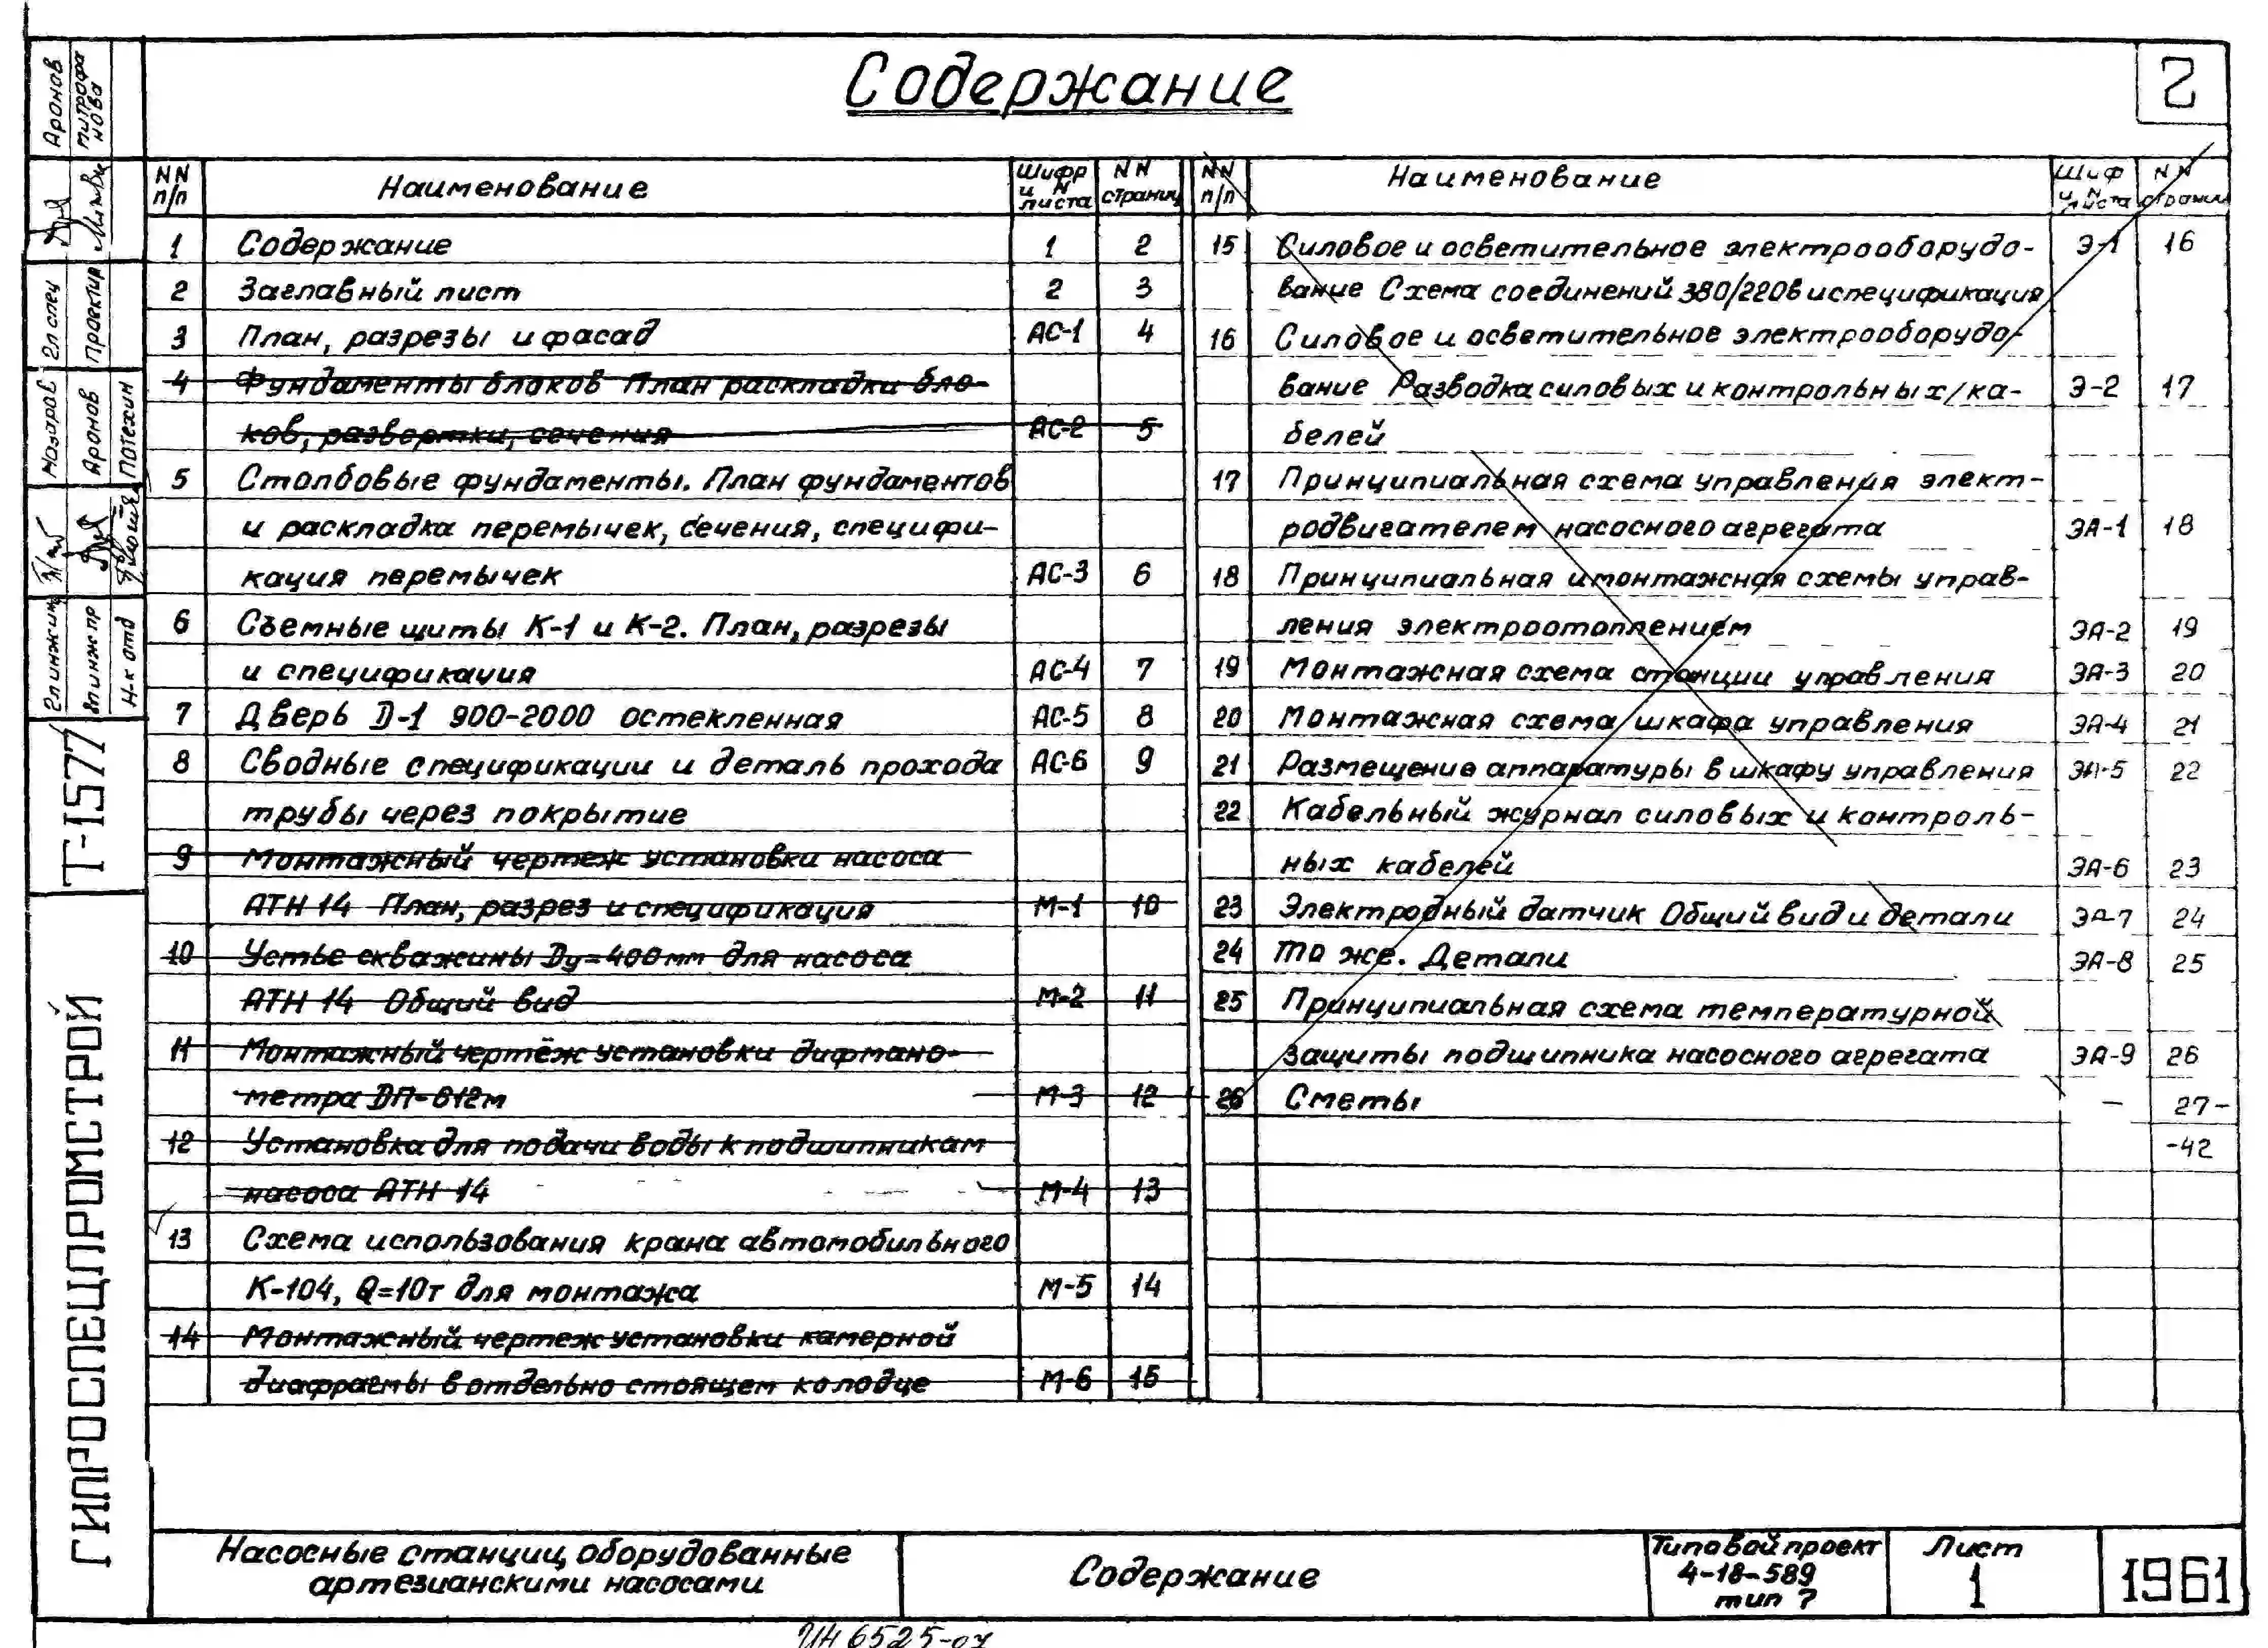 Содержание
2
NN п/п Наименование Шифр и N листа NN страниц
1 Содержание 1 2
2 Заглавный лист 2 3
3 План, разрезы и фасад АС-1 4
4 Фундаменты блоков План раскладки бло-
ков, развертки, сечения АС-2 5
5 Столбовые фундаменты. План фундаментов
и раскладка перемычек, сечения, специфи-
кация перемычек АС-3 6
6 Съемные щиты К-1 и К-2. План, разрезы
и спецификация АС-4 7
7 Дверь D-1 900-2000 остекленная АС-5 8
8 Сводные спецификации и деталь прохода АС-6 9
трубы через покрытие
9 Монтажный чертеж установки насоса
АТН 14 План, разрез и спецификация М-1 10
10 Устье скважины Dу=400мм для насоса
АТН 14 Общий вид М-2 11
11 Монтажный чертёж установки дифмано-
метра ДП-612м М-3 12
12 Установка для подачи воды к подшипникам
насоса АТН 14 М-4 13
13 Схема использования крана автомобильного
К-104, Q=10т для монтажа М-5 14
14 Монтажный чертеж установки камерной
диафрагмы в отдельно стоящем колодце М-6 15
NN п/п Наименование Шиф и N листа NN страниц
15 Силовое и осветительное электрооборудо- Э-1 16
вание Схема соединений 380/220в и спецификация
16 Силовое и осветительное электрооборудо-
вание Разводка силовых и контрольных ка- Э-2 17
белей
17 Принципиальная схема управления элект-
родвигателем насосного агрегата ЭА-1 18
18 Принципиальная и монтажная схемы управ-
ления электроотоплением ЭА-2 19
19 Монтажная схема станции управления ЭА-3 20
20 Монтажная схема шкафа управления ЭА-4 21
21 Размещение аппаратуры в шкафу управления ЭА-5 22
22 Кабельный журнал силовых и контроль-
ных кабелей ЭА-6 23
23 Электродный датчик Общий вид и детали ЭА-7 24
24 То же. Детали ЭА-8 25
25 Принципиальная схема температурной
защиты подшипника насосного агрегата ЭА-9 26
26 Сметы – 27-
-42
Аронов
Митрофанова
Гл спец
Проектир
Назаров
Аронов
Потехин
Гл инж инж
Гл инж пр
Н-к отд
Т-1577
ГИПРОСПЕЦПРОМСТРОЙ
Насосные станции, оборудованные
артезианскими насосами
Содержание
Типовой проект
4-18-589
тип 7
Лист
1
1961
ИН 6525-07